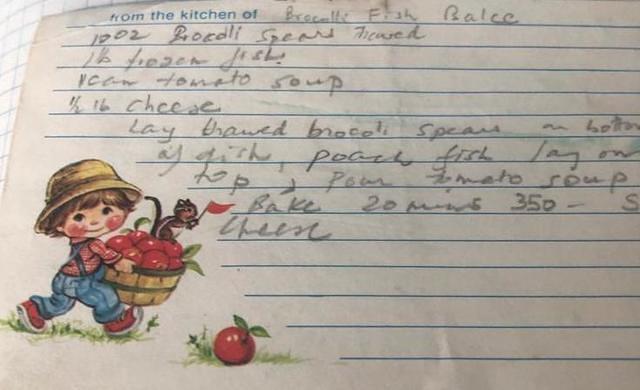 from the kitchen of Brocolli Fish Bake
10oz Brocoli Spears Thawed
1lb frozen fish
1 can tomato soup
1/2 lb cheese
Lay thawed brocoli spears on bottom
of dish, poach fish lay on
top, Pour tomato soup
Bake 20 mins 350 - S
Cheese